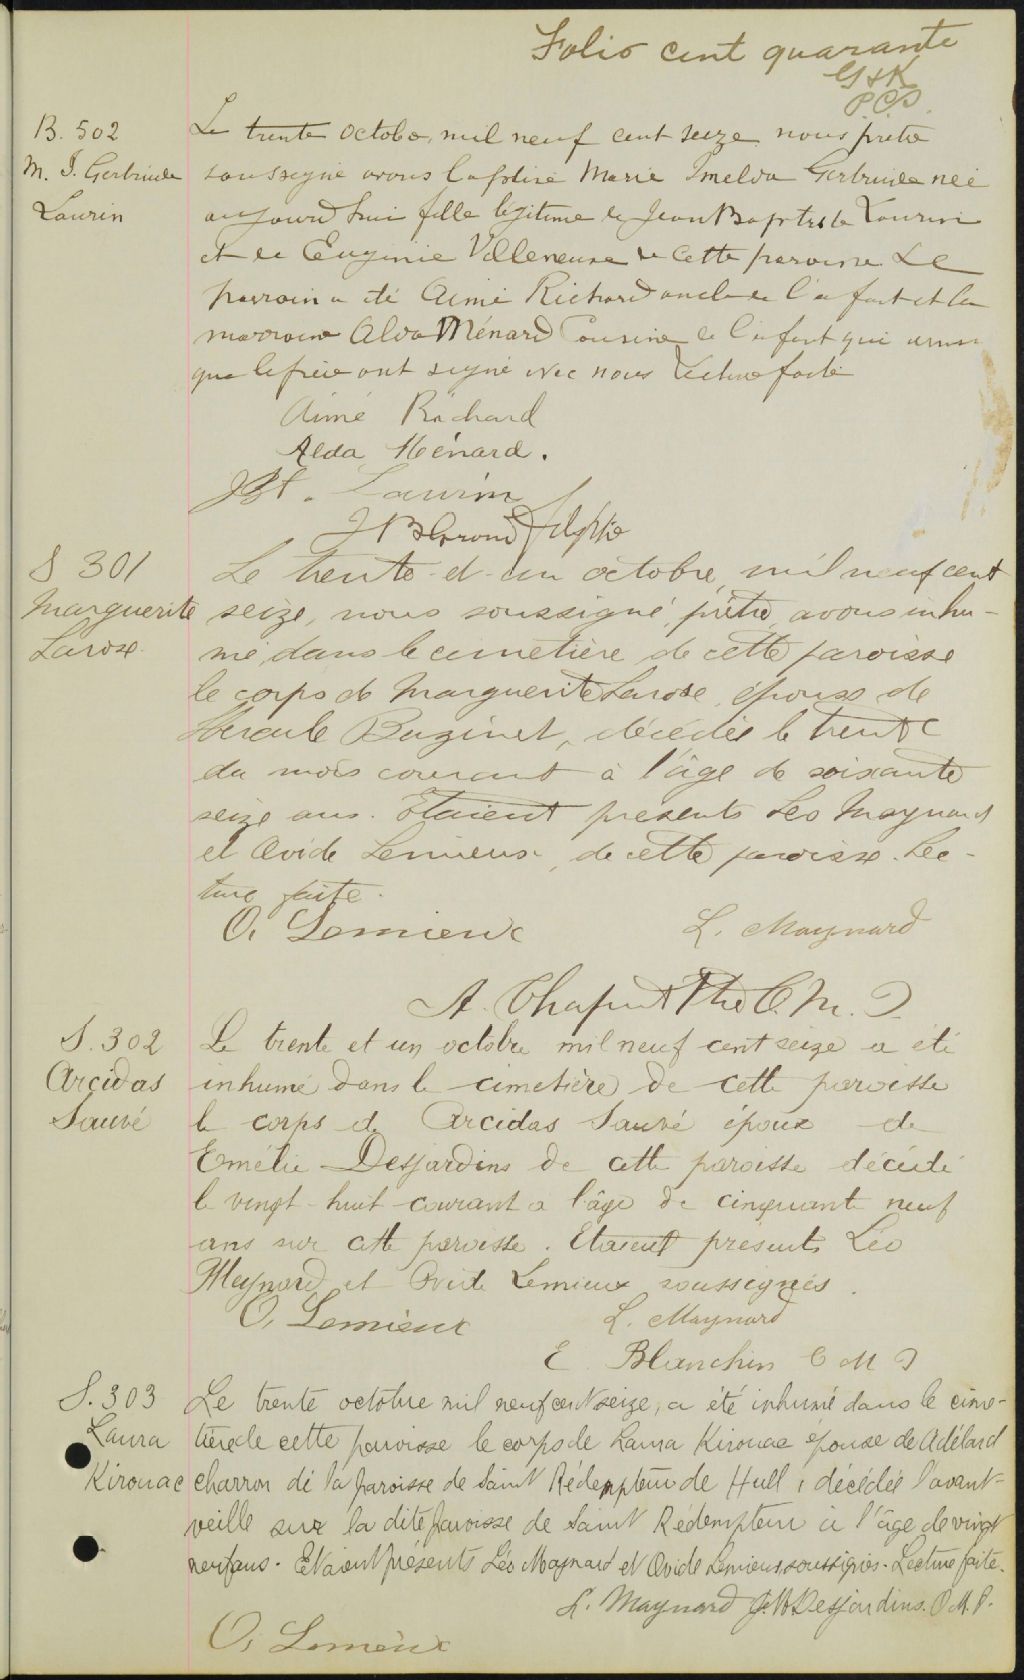 Folio cent quarante
G & K
P.C.S.
B. 502
M. I. Gertrude
Laurin
Le trente octobre, mil neuf cent seize nous prêtre
soussigné avons baptisé Marie Imelda Gertrude née
aujourd'hui fille légitime de Jean Baptiste Laurin
et de Eugénie Villeneuve de cette paroisse Le
parrain a été Aimé Richard oncle de l'enfant et la
marraine Alda Ménard Cousine de l'enfant qui ainsi
que le père ont signé avec nous Lecture faite
Aimé Richard
Alda Ménard.
JBt. Laurin
S 301
Marguerite
Larose
Le trente-et-un octobre, mil neuf cent
seize, nous soussigné, prêtre, avons inhu-
mé, dans le cimetière de cette paroisse
le corps de Marguerite Larose, épouse de
Hercule Bazinet, décédée le trente
du mois courant à l'âge de soixante
seize ans. Etaient présents Léo Maynard
et Ovide Lemieux, de cette paroisse. Lec-
ture faite.
O. Lemieux L. Maynard
A. Chaput Ptre O.M.I.
S. 302
Arcidas
Sauvé
Le trente et un octobre mil neuf cent seize a été
inhumé dans le cimetière de cette paroisse
le corps de Arcidas Sauvé époux de
Emélie Desjardins de cette paroisse décédé
le vingt-huit courant a l'âge de cinquante neuf
ans sur cette paroisse. Etaient présents Léo
Maynard et Ovide Lemieux soussignés.
O. Lemieux L. Maynard
E. Blanchin O M I
S. 303
Laura
Kirouac
Le trente octobre mil neuf cent seize, a été inhumé dans le cime-
tière de cette paroisse le corps de Laura Kirouac épouse de Adélard
Charron de la paroisse de Saint Rédempteur de Hull, décédée l'avant-
veille sur la dite paroisse de Saint Rédempteur à l'âge de vingt
neuf ans. Etaient présents Léo Maynard et Ovide Lemieux soussignés. Lecture faite.
L. Maynard J.B Desjardins. O.M.I.
O. Lemieux